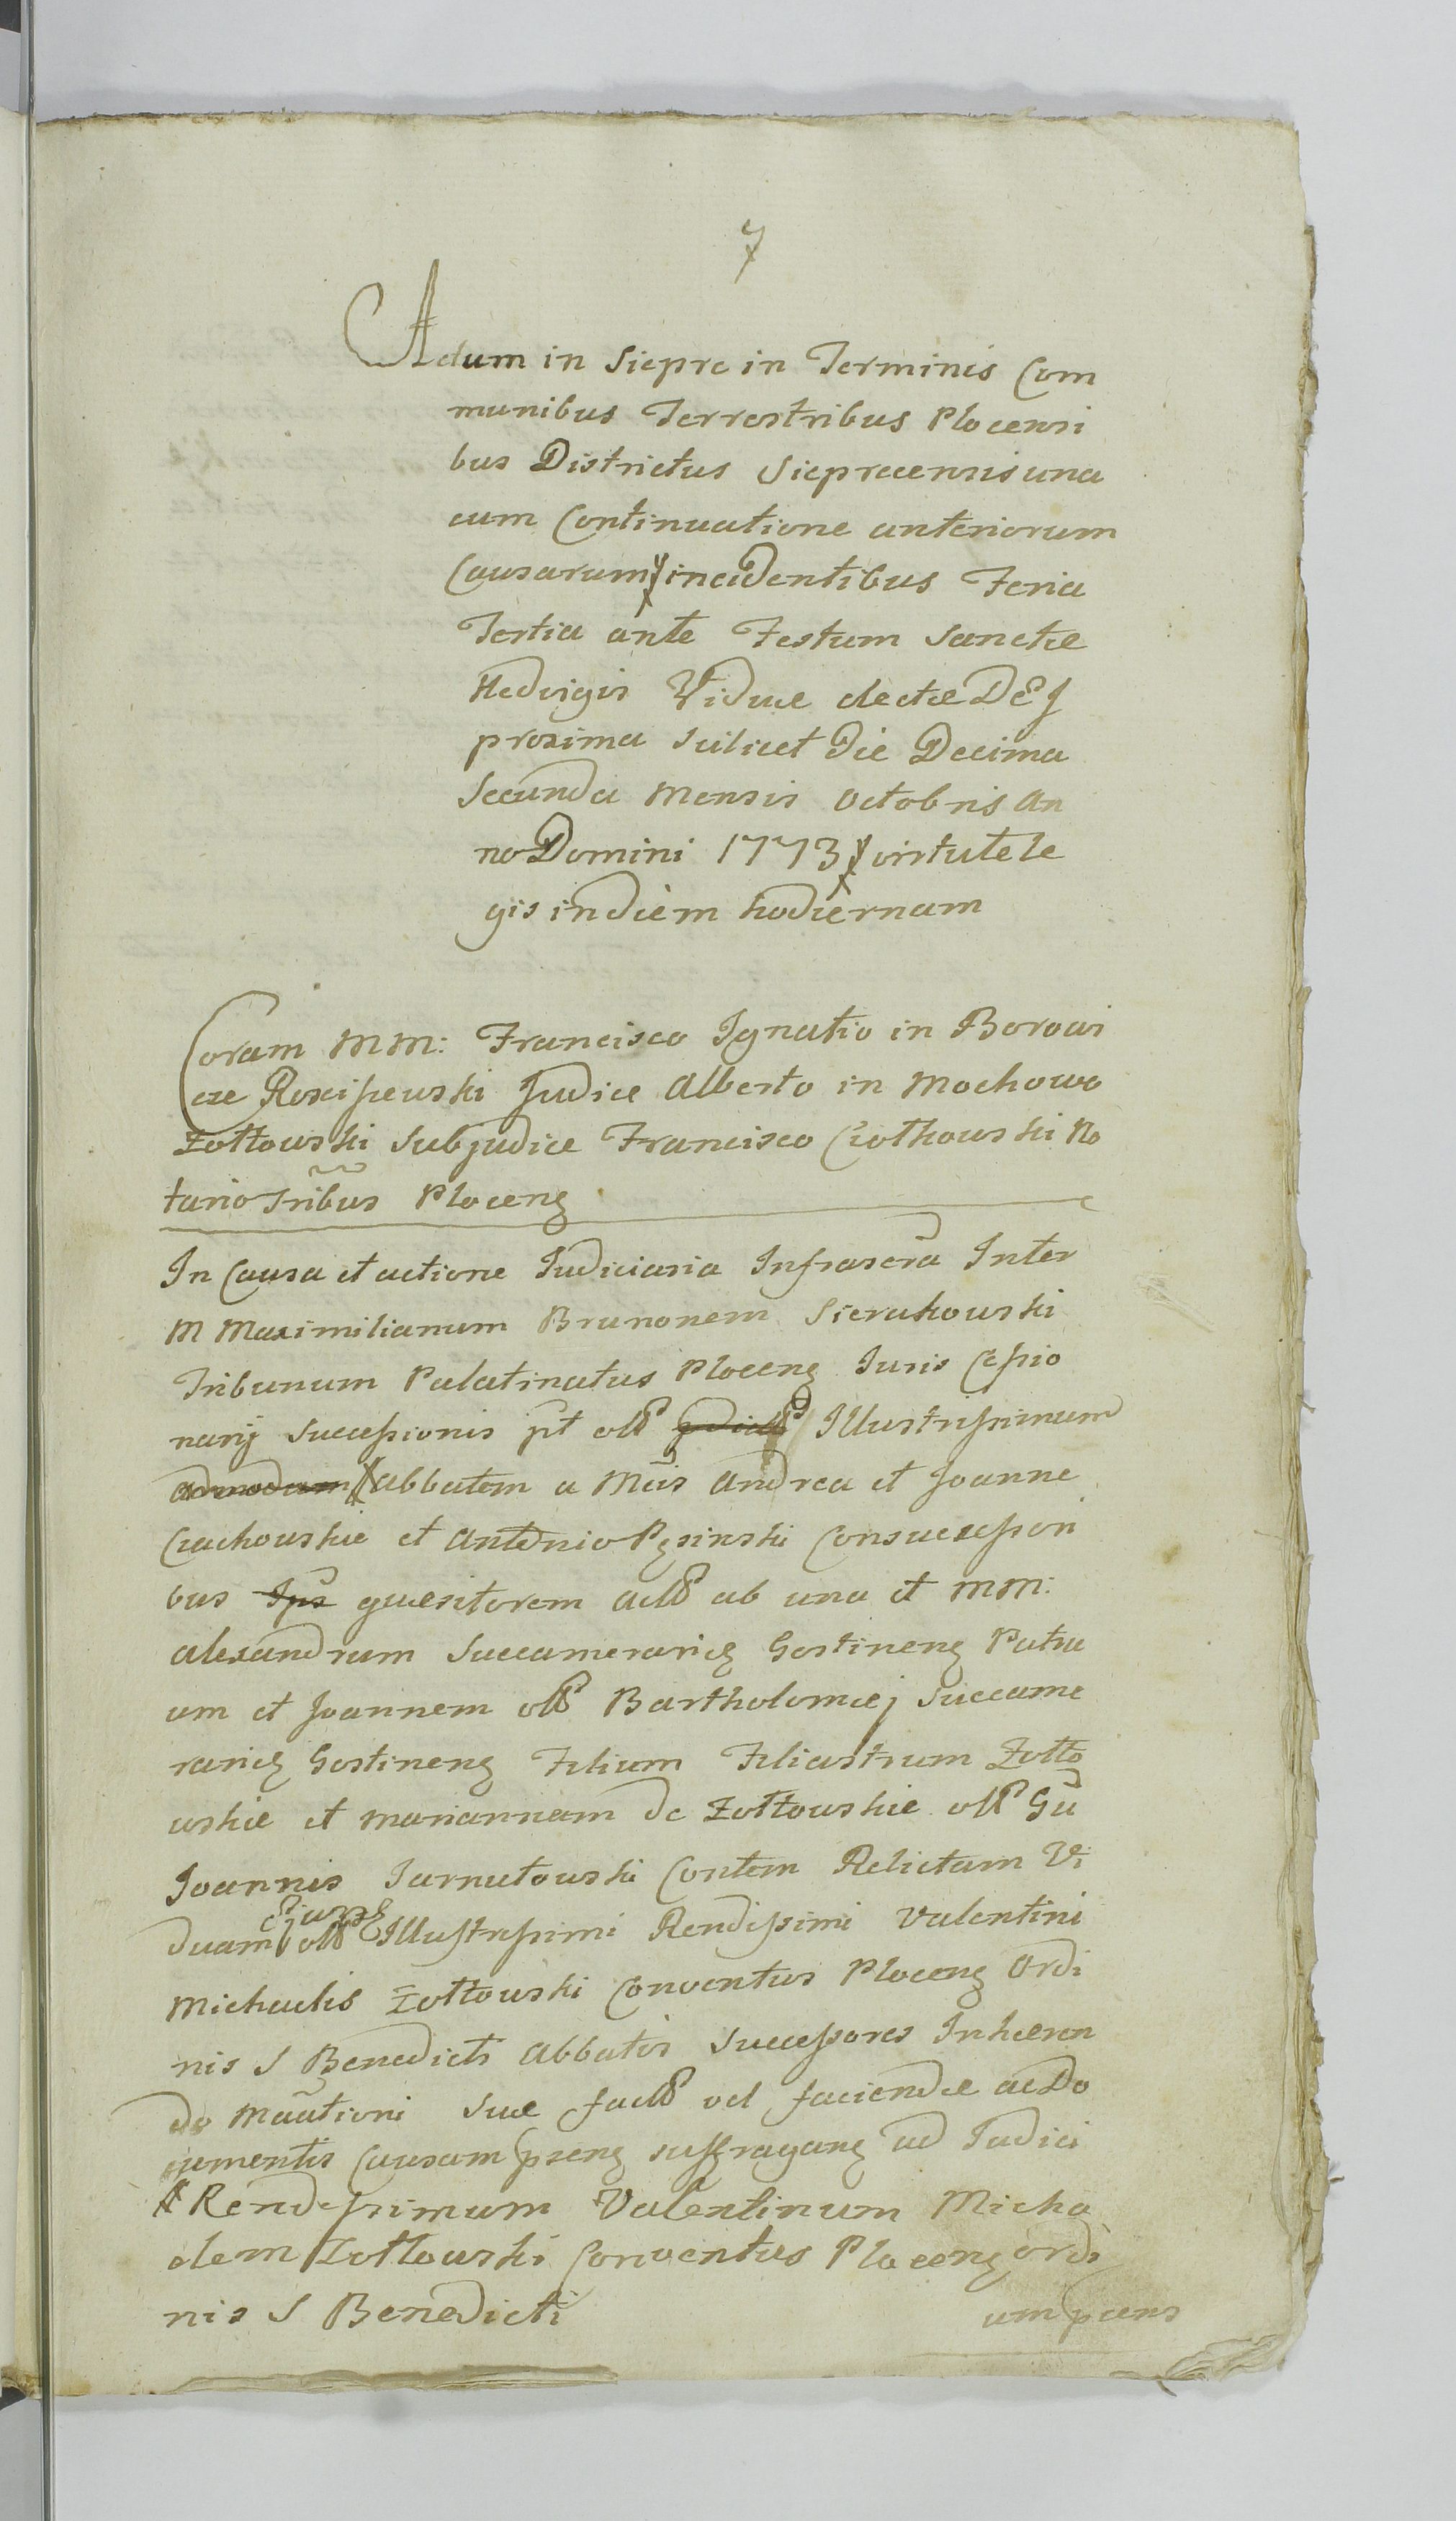 7
Actum in Sieprc in Terminis Com
munibus Terrestribus Plocensi
bus Districtus Sieprecensis una
cum Continuatione anteriorum
Causarum incidentibus Feria
Tertia ante Festum Sanctæ
Hedvigis Viduæ electæ DEJ
proxima scilicet Die Decima
Secunda Mensis Octobris An
no Domini 1773 virtute le
gis in diem hodiernam
Coram MM: Francisco Ignatio in Borowi
cze Rosciszewski Judice Alberto in Mochowo
Zołtowski Subjudice Francisco Czołkowski No
tario Tribus Plocens
In Causa et actione Judiciaria Infrascra Inter
M Maximilianum Brunonem Sierakowski
Tribunum Palatinatus Plocens Juris Cessio
narij Successionis pt olb Illustrissimum
admodum Abbatem a Mcis Andrea et Joanne
Czachowskie et Antonio Pęsinski Consuccessori
bus Ips quæsitorem actb ab una et MM:
Alexandrum Succamerarid Gostinens Patru
um et Joannem olb Bartholomæj Succame
rarid Gostinens Filium Filiastrum Zołto
wskie et Mariannam de Zołtowskie olb Gu
Joannis Jarnutowski Contem Relictam Vi
duam olb Illustrissimi Rendissimi Valentini
Michaelis Zołtowski Conventus Plocens Ordi
nis S Benedicti Abbatis Successores Inhæren
do Mautioni suæ factb vel faciendæ ac Do
cumentis Causam psens suffragans ad Judici
Rendissimum Valentinum Micha
elem Zołtowski Conventus Plocens Ordi
nis S Benedicti
um pcens